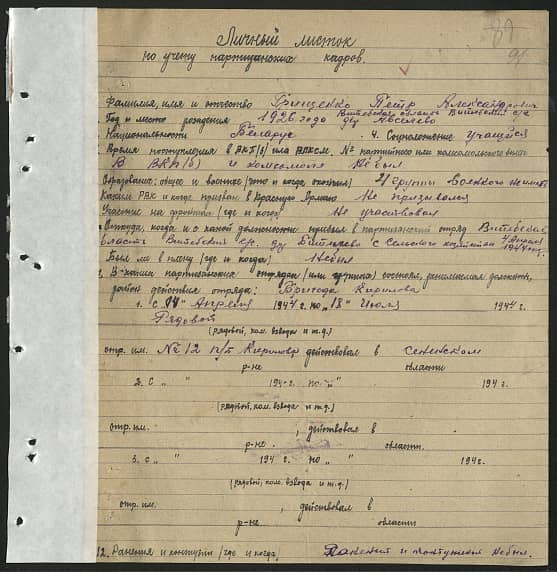 91
Личный листок
по учету партизанских кадров.
Фамилия, имя и отчество Грищенко Петр Александрович
Год и место рождения 1926 года Витебская область Витебский с/с дер
Национальность Беларус 4. Соцположение Учащийся
Время поступления в ВКП(б) или ВЛКСМ, № партийного или комсомольского билета
В ВКП(б) и комсомоле не был
Образование: общее и военное (что и когда окончил) группы Военного не имеет
Каким РВК и когда призван в Красную Армию Не призывался
Участие на фронтах (где и когда) Не участвовал
Откуда, когда и с какой должности прибыл в партизанский отряд Витебская
область Витебский с/с. дер с сельского хозяйства 4 Апреля 1944 год.
Был ли в плену (где и когда) Не был
В каких партизанских отрядах (или группах) состоял, занимаемая должность,
район действия отряда: Бригада Кирилова
1. с "14" Апреля 1944 г. по "18" Июля 1944 г.
Рядовой
(рядовой, ком. взвода и т.д.)
отр. им. № 12 п/п Кирилова действовал в Сенненском
р-не области
2. С " " 194 г. по " " 194 г.
(рядовой, ком. взвода и т.д.)
отр. им. , действовал в
р-не области.
3. с " " 194 г. по " " 194 г.
(рядовой, ком. взвода и т.д.)
отр. им. , действовал в
р-не области
12. Ранения и контузии (где и когда) Ранений и контузий не был.